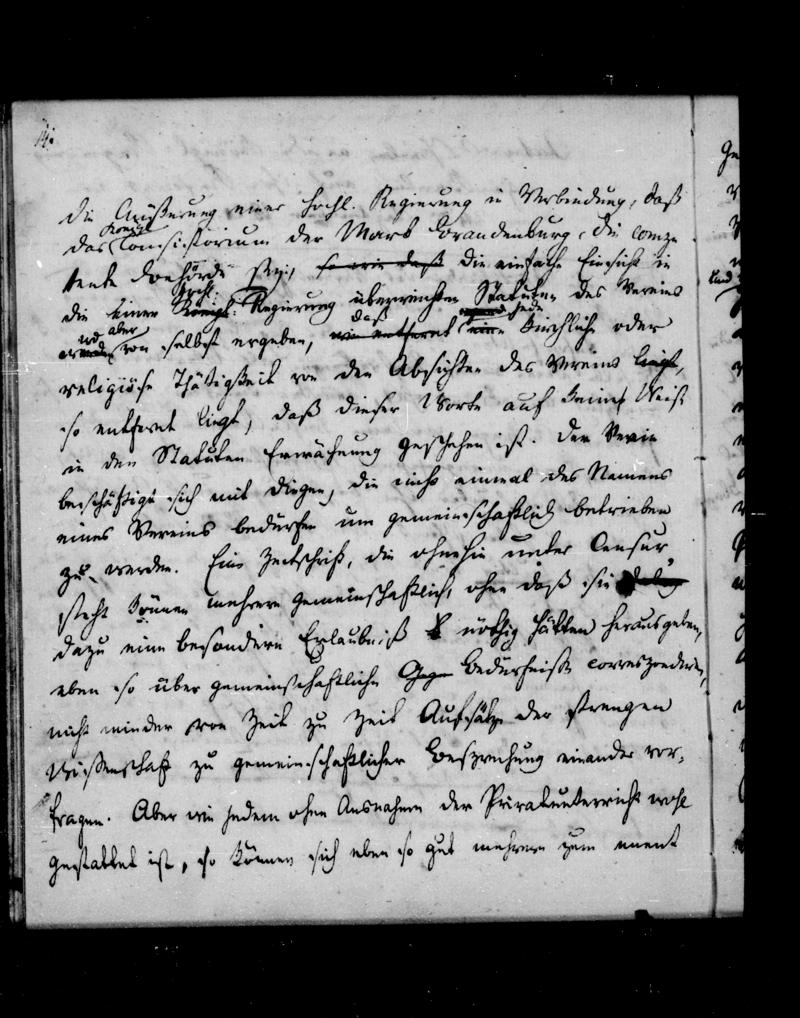 14.
die Äußerung einer hochl. Regierung in Verbindung, daß
Königl
das Consistorium der Mark Brandenburg, die compe-
tente Behörde sey, so wie daß die einfache Einsicht in
hochl
die einer Königl. Regierung überreichten Statuten des Vereins
wo aber daß jede
von selbst ergeben, wie entfernt eine kirchliche oder
religiöse Thätigkeit von den Absichten des Vereins liegt,
so entfernt liegt, daß dieser Worte auf keine Weise
in den Statuten Erwähnung geschehen ist. Der Verein
beschäftigt sich mit Dingen, die nicht einmal des Namens
eines Vereins bedürfen um gemeinschaftlich betrieben
zu werden. Eine Zeitschrift, die ohnehin unter Censur
steht können mehrere gemeinschaftlich, ohne daß sie
dazu eine besondere Erlaubniß nöthig hätten herausgeben,
eben so über gemeinschaftliche Bedürfnisse correspondiren,
nicht minder von Zeit zu Zeit Aufsätze der strengen
Wissenschaft zu gemeinschaftlicher Besprechung einander vor-
tragen. Aber wie jedem ohne Ausnahme der Privatunterricht wohl
gestattet ist, so können sich eben so gut mehrere zum unent